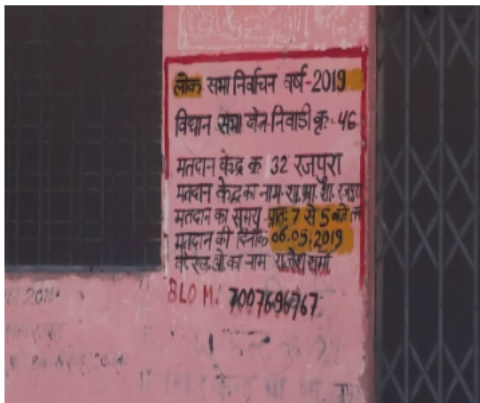 लोक सभा निर्वाचन वर्ष-2019
विधान सभा क्षेत्र-निवाडी क्र.-46
मतदान केन्द्र क्र. 32 रजपुरा
मतदान केन्द्र का नाम-शा.प्रा.शा. रजपुरा
मतदान का समय प्रातः 7 से 5 बजे तक
मतदान की दिनांक 06.05.2019
बी.एल.ओ का नाम राजेश शर्मा
BLO M. 7007696967
2018